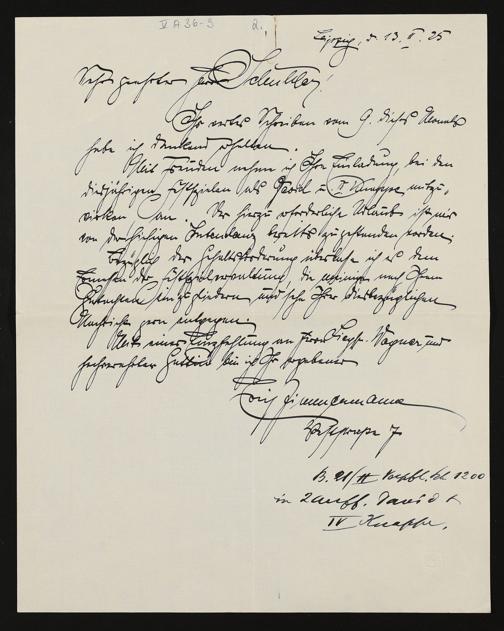 V A 36-3 2.
Leipzig, d 13. II. 25
Sehr geehrter Herr Schuler!
Ihr wertes Schreiben vom 9. dieses Monats
habe ich dankend erhalten.
Mit Freuden nehme ich Ihre Einladung, bei den
diesjährigen Festspielen als David u. IV Knappe mitzu,
wirken an. Der hierzu erforderliche Urlaub ist mir
von der hiesigen Intendanz bereits zugestanden worden.
Bezüglich der Gehaltsforderung überlasse ich es dem
Ermessen der Festspielverwaltung, die meinige nach Ihrem
Gutachten einzugliedern und sehe Ihrer diesbezüglichen
Nachricht gern entgegen.
Mit einer Empfehlung an Herrn Siegfr. Wagner und
hochverehrter Gattin bin ich Ihr ergebener
Erich Zimmermann
7
B. 21/II 1200
in 2 Auff. David +
IV Knappe.